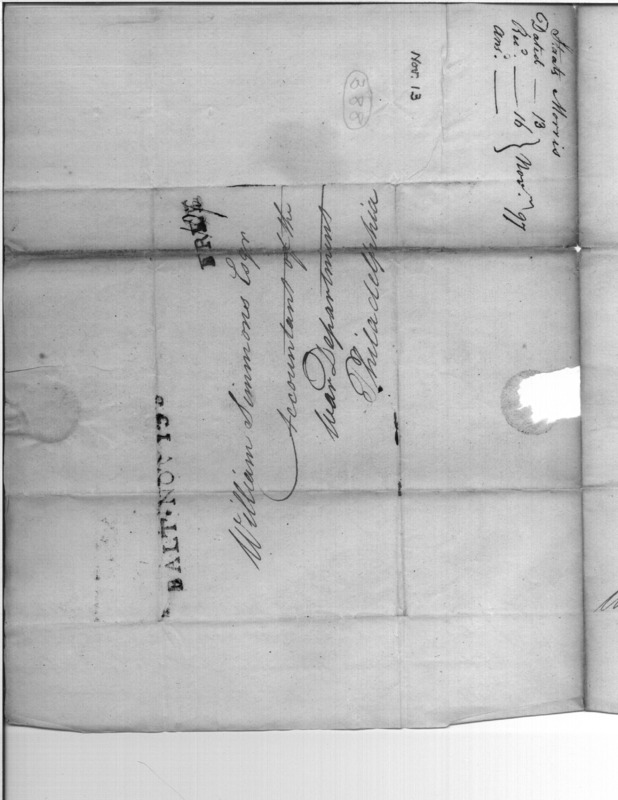 Staats Morris
Dated — 13
Recd. — 16 } Novr. 97
Ansd. —
Nov. 13
888
FREE
BALT. NOV 13
William Simmons Esqr
Accountant of the
War Department
Philadelphia